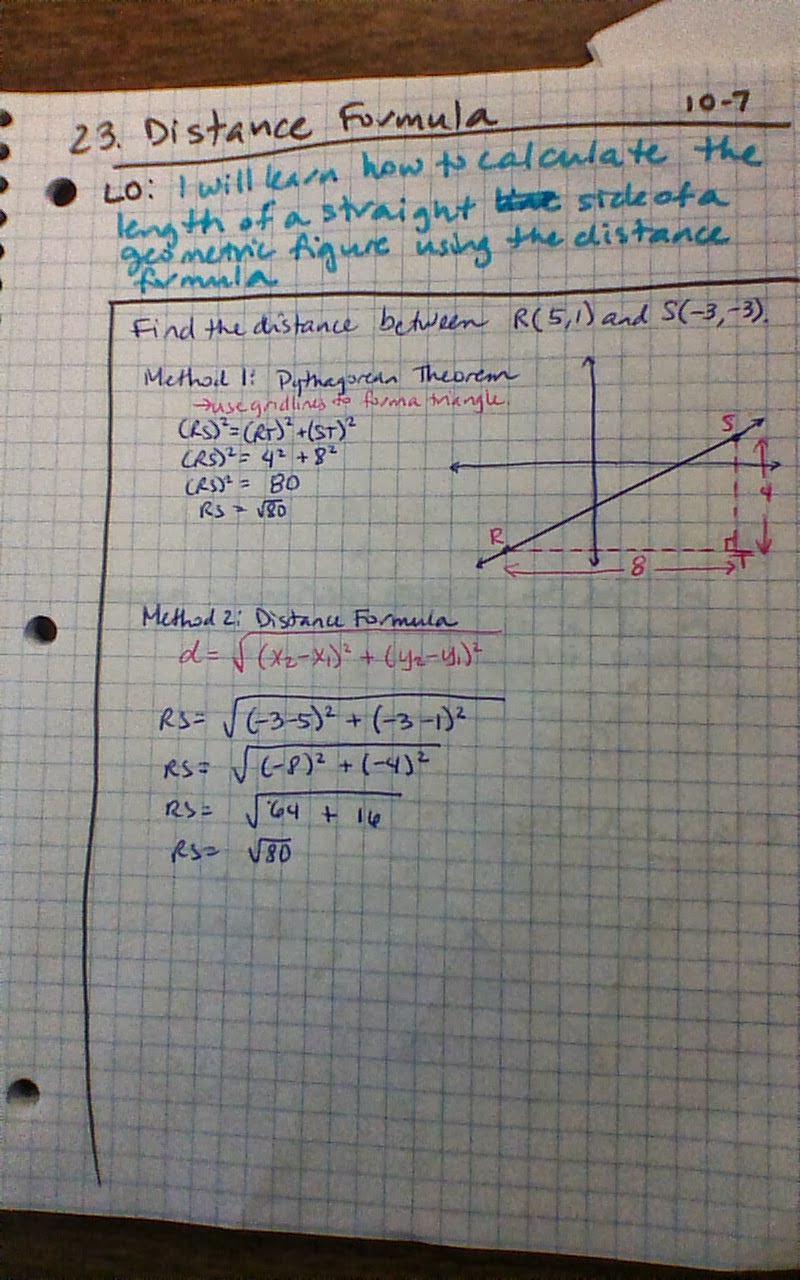 23. Distance Formula 10-7
LO: I will learn how to calculate the
length of a straight side of a
geometric figure using the distance
formula
Find the distance between R(5,1) and S(-3,-3).
Method 1: Pythagorean Theorem
→use gridlines to form a triangle.
(RS)²=(RT)²+(ST)²
(RS)² = 4² + 8²
(RS)² = 80
RS = √80
S
4
R
T
8
Method 2: Distance Formula
d = √(x₂-x₁)² + (y₂-y₁)²
RS = √(-3-5)² + (-3-1)²
RS = √(-8)² + (-4)²
RS = √64 + 16
RS = √80